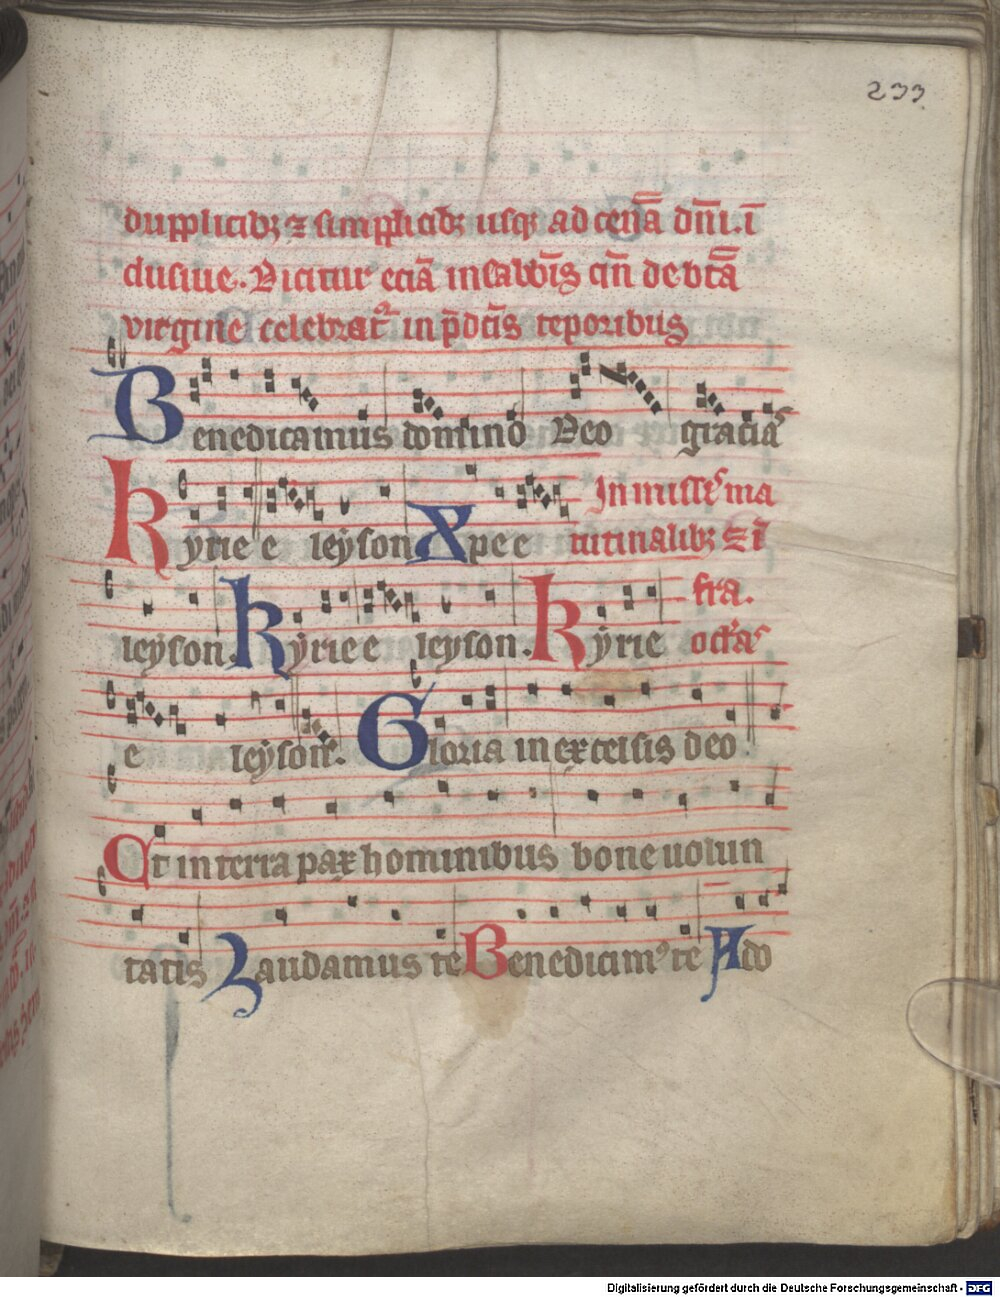 233
dupplicibꝫ ⁊ simplicibꝫ usqꝫ ad cenā dn̄i. ī
clusiue. Dicitur eciā in sabbīs qn̄ de btā
virgine celebrat᷑ in p̄dc̄is tēporibus
Benedicamus domino Deo gracias
Kyrie e leyson Xpe e
In missis ma
tutinalibꝫ ⁊ ī
leyson. Kyrie e leyson. Kyrie
fra.
octauas
e leyson. Gloria in excelsis deo
Et in terra pax hominibus bone uolun
tatis Laudamus te Benedicimꝰ te Ado
Digitalisierung gefördert durch die Deutsche Forschungsgemeinschaft - DFG